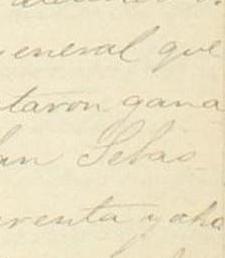 eneral que
taron gana
an Sebas-
renta y ocho